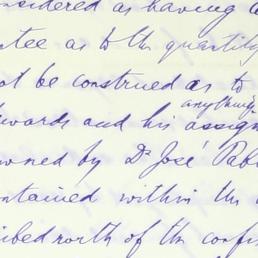 nsidered as having a
ntee as to the quantity
ot be construed as to
anything
dwards and his assign
owned by Dn José Pab
ntained within the
ibed north of the conf